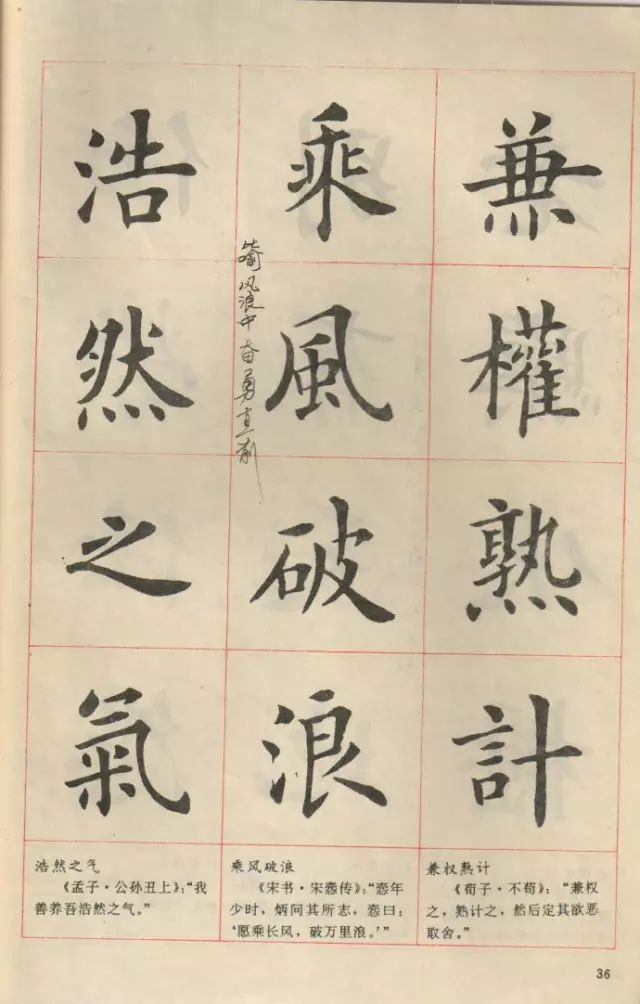 兼權熟計
乘風破浪
喻风浪中奋勇直前
浩然之氣
浩然之气
《孟子·公孙丑上》：“我
善养吾浩然之气。”
乘风破浪
《宋书·宗悫传》：“悫年
少时，炳问其所志，悫曰：
‘愿乘长风，破万里浪。’”
兼权熟计
《荀子·不苟》：“兼权
之，熟计之，然后定其欲恶
取舍。”
36